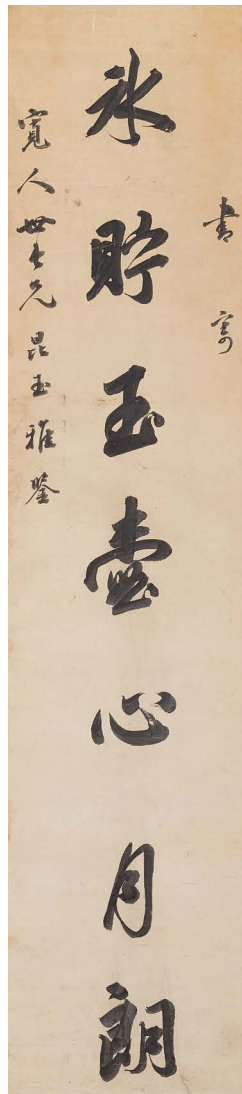 書寄
氷貯玉壺心月朗
寬人世長兄昆玉雅鑒